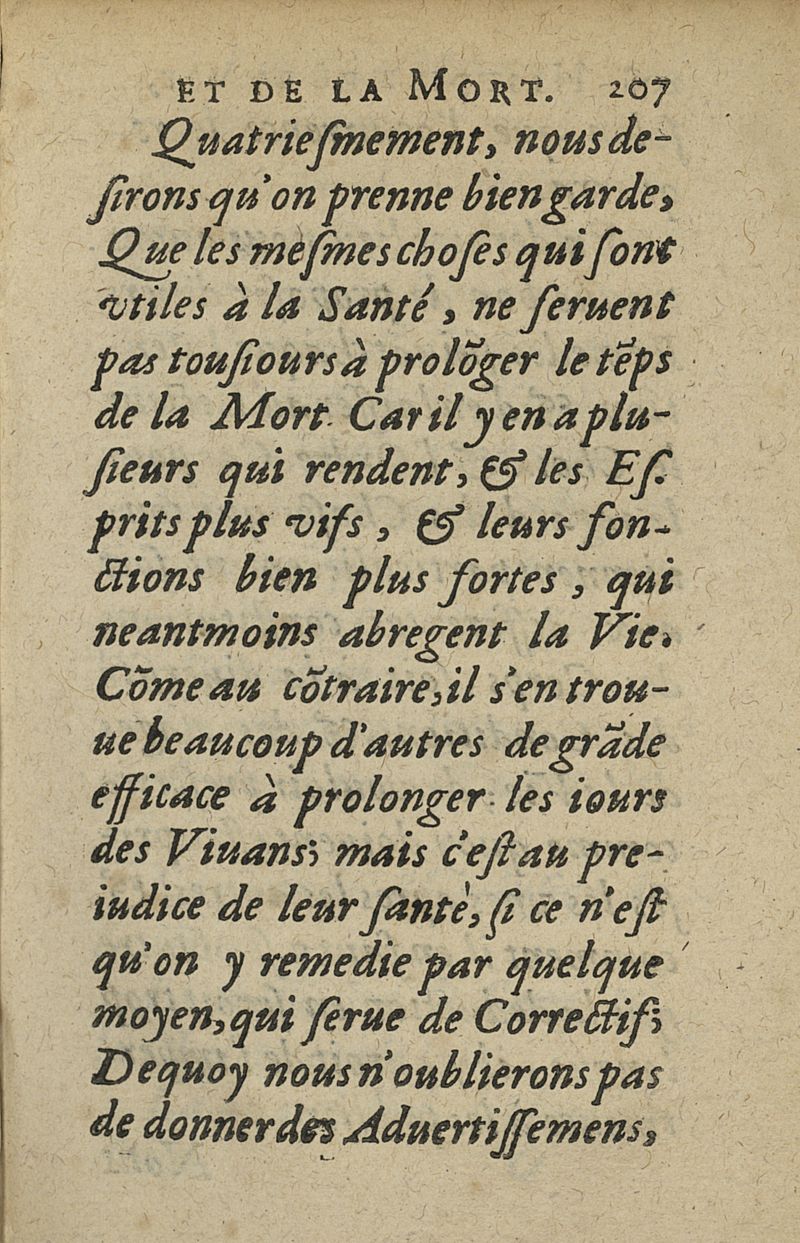 ET DE LA MORT. 207
Quatrieſmement, nous de-
ſirons qu'on prenne bien garde,
Que les meſmes choſes qui ſont
vtiles à la Santé, ne ſeruent
pas touſiours à prolõger le tẽps
de la Mort. Car il y en a plu-
ſieurs qui rendent, & les Eſ-
prits plus vifs, & leurs fon-
ctions bien plus fortes, qui
neantmoins abregent la Vie.
Cõme au cõtraire, il s'en trou-
ue beaucoup d'autres de grãde
efficace à prolonger les iours
des Viuans; mais c'eſt au pre-
iudice de leur ſantè, ſi ce n'eſt
qu'on y remedie par quelque
moyen, qui ſerue de Correctif;
Dequoy nous n'oublierons pas
de donner des Aduertiſſemens,